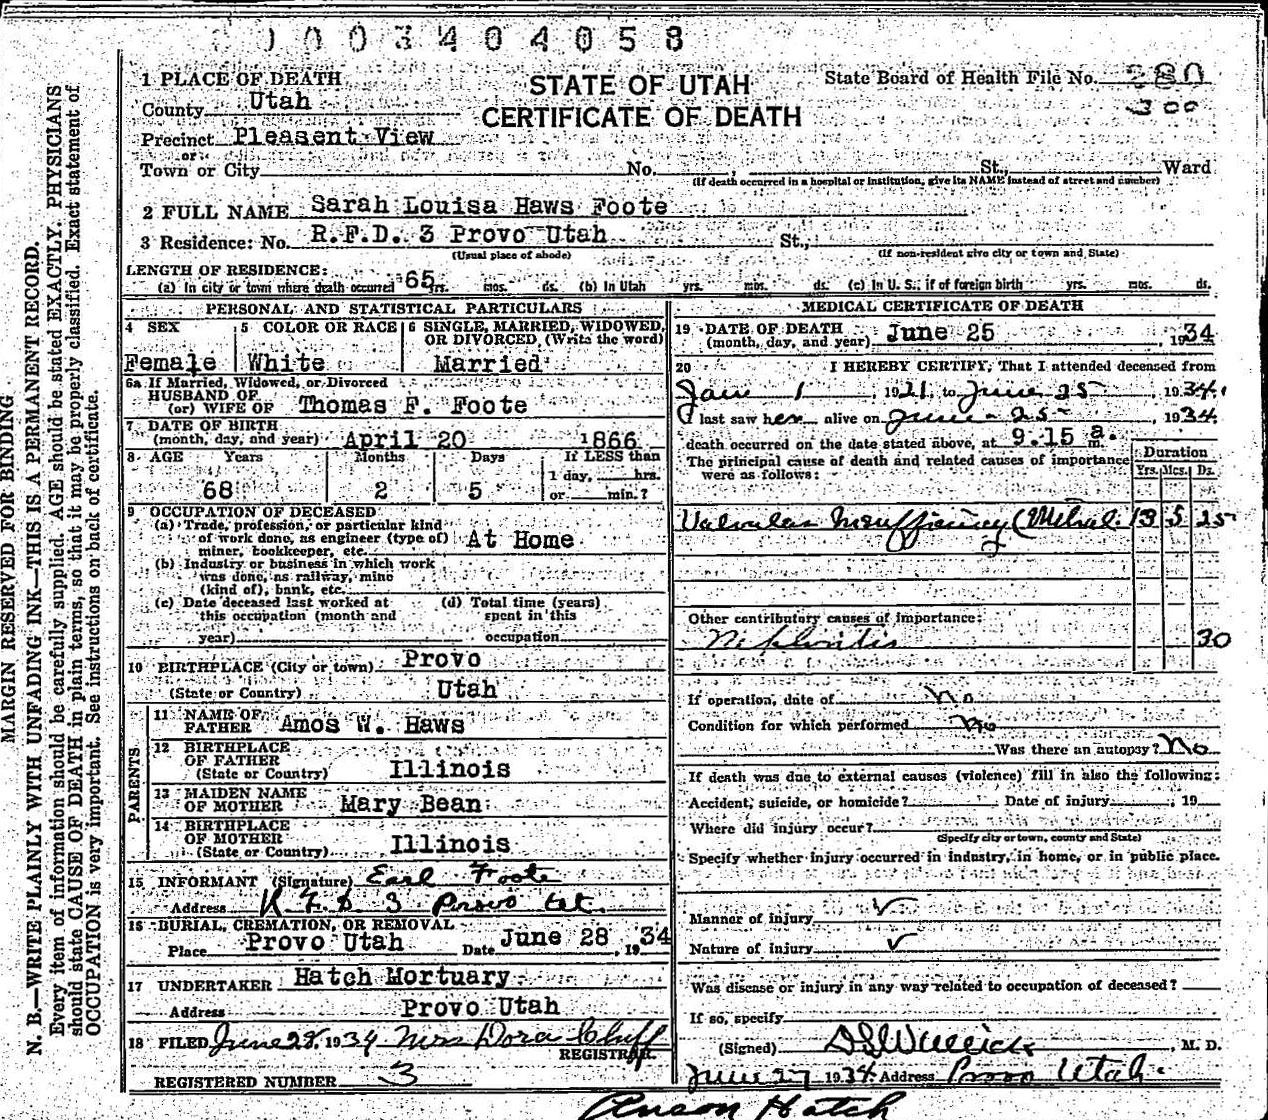 1003404058
STATE OF UTAH
CERTIFICATE OF DEATH
State Board of Health File No. 280
300
1 PLACE OF DEATH
County Utah
Precinct Pleasent View
or
Town or City No. , St., Ward
(If death occurred in a hospital or institution, give its NAME instead of street and number)
2 FULL NAME Sarah Louisa Haws Foote
3 Residence: No. R.F.D. 3 Provo Utah St.,
(Usual place of abode) (If non-resident give city or town and State)
LENGTH OF RESIDENCE:
(a) In city or town where death occurred 65 yrs. mos. ds. (b) In Utah yrs. mos. ds. (c) In U. S., if of foreign birth yrs. mos. ds.
PERSONAL AND STATISTICAL PARTICULARS
4 SEX 5 COLOR OR RACE 6 SINGLE, MARRIED, WIDOWED,
OR DIVORCED, (Write the word)
Female White Married
6a If Married, Widowed, or Divorced
HUSBAND OF
(or) WIFE OF Thomas F. Foote
7 DATE OF BIRTH
(month, day, and year) April 20 1866
8 AGE Years Months Days If LESS than
1 day, hrs.
68 2 5 or min.?
9 OCCUPATION OF DECEASED
(a) Trade, profession, or particular kind
of work done, as engineer (type of) At Home
miner, bookkeeper, etc.
(b) Industry or business in which work
was done, as railway, mine
(kind of), bank, etc.
(c) Date deceased last worked at (d) Total time (years)
this occupation (month and spent in this
year) occupation
10 BIRTHPLACE (City or town) Provo
(State or Country) Utah
PARENTS
11 NAME OF
FATHER Amos W. Haws
12 BIRTHPLACE
OF FATHER
(State or Country) Illinois
13 MAIDEN NAME
OF MOTHER Mary Bean
14 BIRTHPLACE
OF MOTHER
(State or Country) Illinois
15 INFORMANT (Signature) Earl Foote
Address R F D 3 Provo Ut.
16 BURIAL, CREMATION, OR REMOVAL
Place Provo Utah Date June 28, 1934
17 UNDERTAKER Hatch Mortuary
Address Provo Utah
18 FILED June 28, 1934 Mrs Dora Cluff
REGISTRAR.
REGISTERED NUMBER 3
MEDICAL CERTIFICATE OF DEATH
19 DATE OF DEATH
(month, day, and year) June 25, 1934
20 I HEREBY CERTIFY, That I attended deceased from
Jan 1, 1921, to June 25, 1934.
I last saw her alive on June 25, 1934
death occurred on the date stated above, at 9:15 a. m.
The principal cause of death and related causes of importance
were as follows:
Duration
Yrs. Mos. Ds.
Valvular Insufficiency (Mitral. 13 5 25
Other contributory causes of importance:
Nephritis 30
If operation, date of No
Condition for which performed No
Was there an autopsy? No
If death was due to external causes (violence) fill in also the following:
Accident, suicide, or homicide? Date of injury , 19
Where did injury occur?
(Specify city or town, county and State)
Specify whether injury occurred in industry, in home, or in public place.
Manner of injury ✓
Nature of injury ✓
Was disease or injury in any way related to occupation of deceased?
If so, specify
(Signed) , M. D.
June 27 1934 Address Provo Utah.
Anson Hatch
MARGIN RESERVED FOR BINDING
N. B.—WRITE PLAINLY WITH UNFADING INK—THIS IS A PERMANENT RECORD.
Every item of information should be carefully supplied. AGE should be stated EXACTLY. PHYSICIANS
should state CAUSE OF DEATH in plain terms, so that it may be properly classified. Exact statement of
OCCUPATION is very important. See instructions on back of certificate.